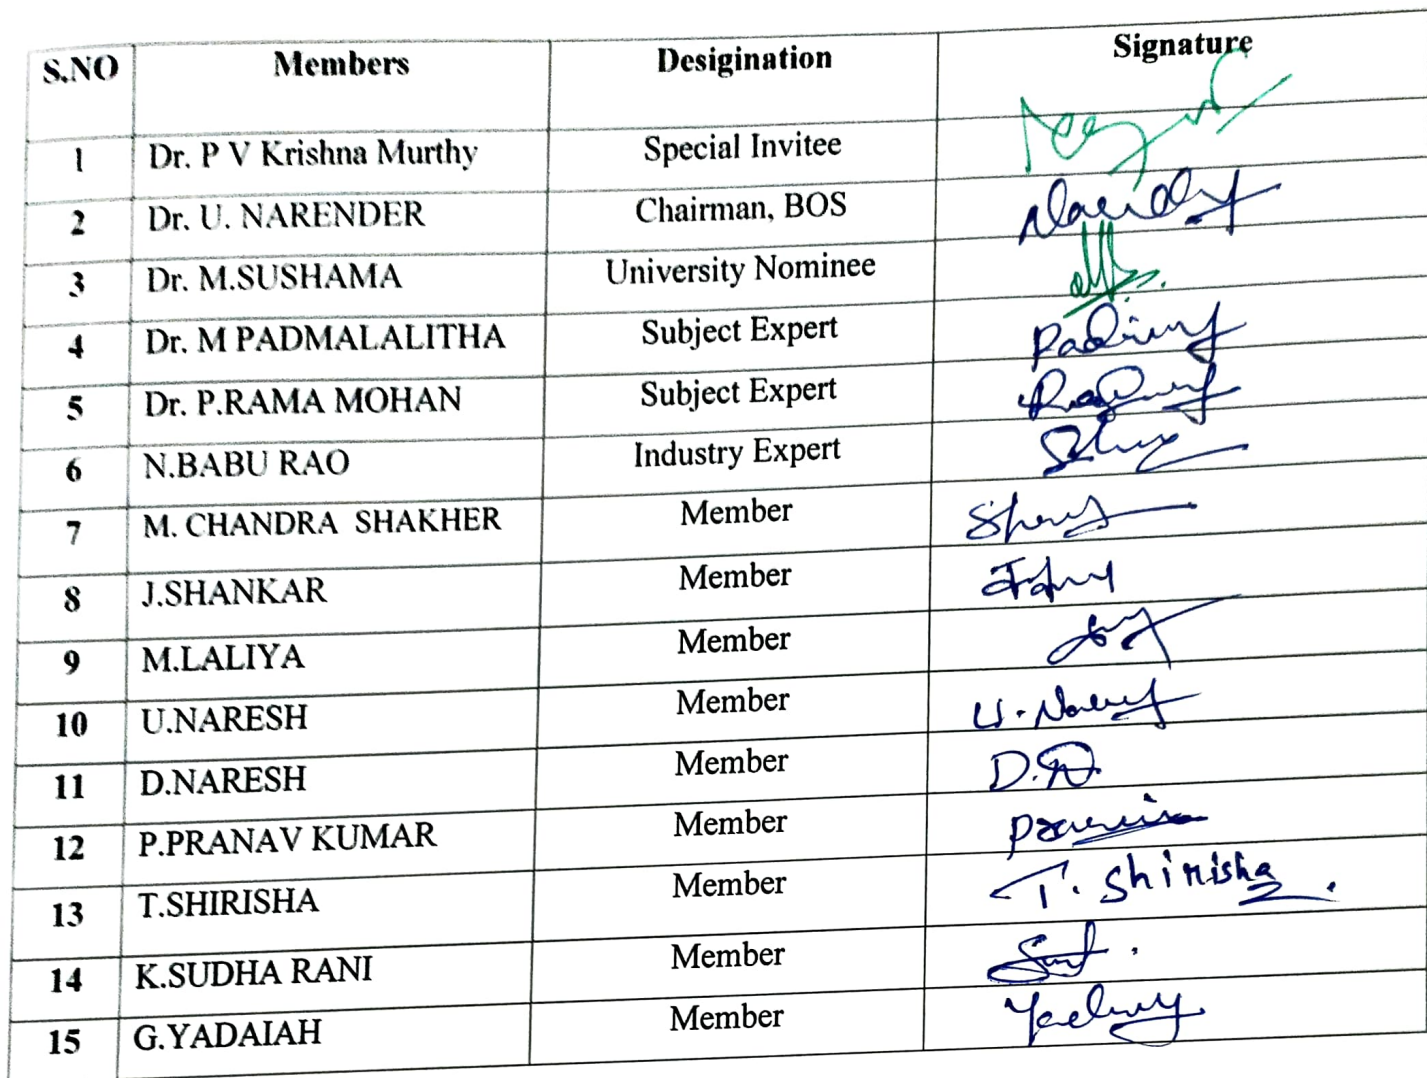 S.NO Members Desigination Signature
1 Dr. P V Krishna Murthy Special Invitee
2 Dr. U. NARENDER Chairman, BOS
3 Dr. M.SUSHAMA University Nominee
4 Dr. M PADMALALITHA Subject Expert
5 Dr. P.RAMA MOHAN Subject Expert
6 N.BABU RAO Industry Expert
7 M. CHANDRA SHAKHER Member
8 J.SHANKAR Member
9 M.LALIYA Member
10 U.NARESH Member
11 D.NARESH Member
12 P.PRANAV KUMAR Member
13 T.SHIRISHA Member T. Shirisha
14 K.SUDHA RANI Member
15 G.YADAIAH Member